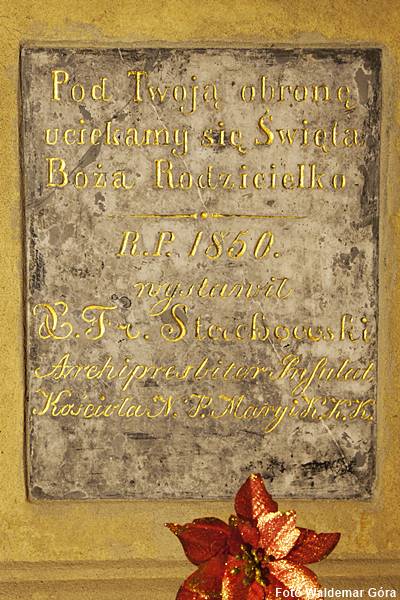 Pod Twoją obronę
uciekamy się Święta
Boża Rodzicielko
R.P. 1850.
wystawił
X. Fr. Stachowski
Archipresbiter Infułat
Kościoła N. P. Maryi K.K.K.
Foto Waldemar Góra